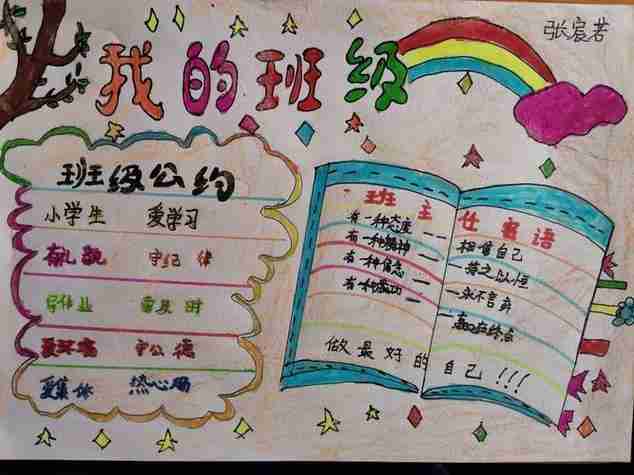 我的班级
张宸若
班级公约
小学生 爱学习
有礼貌 守纪律
写作业 需及时
爱环境 守公德
爱集体 热心肠
班主任寄语
有一种态度——相信自己
有一种精神——持之以恒
有一种信念——永不言弃
有一种感动——
做最好的自己!!!